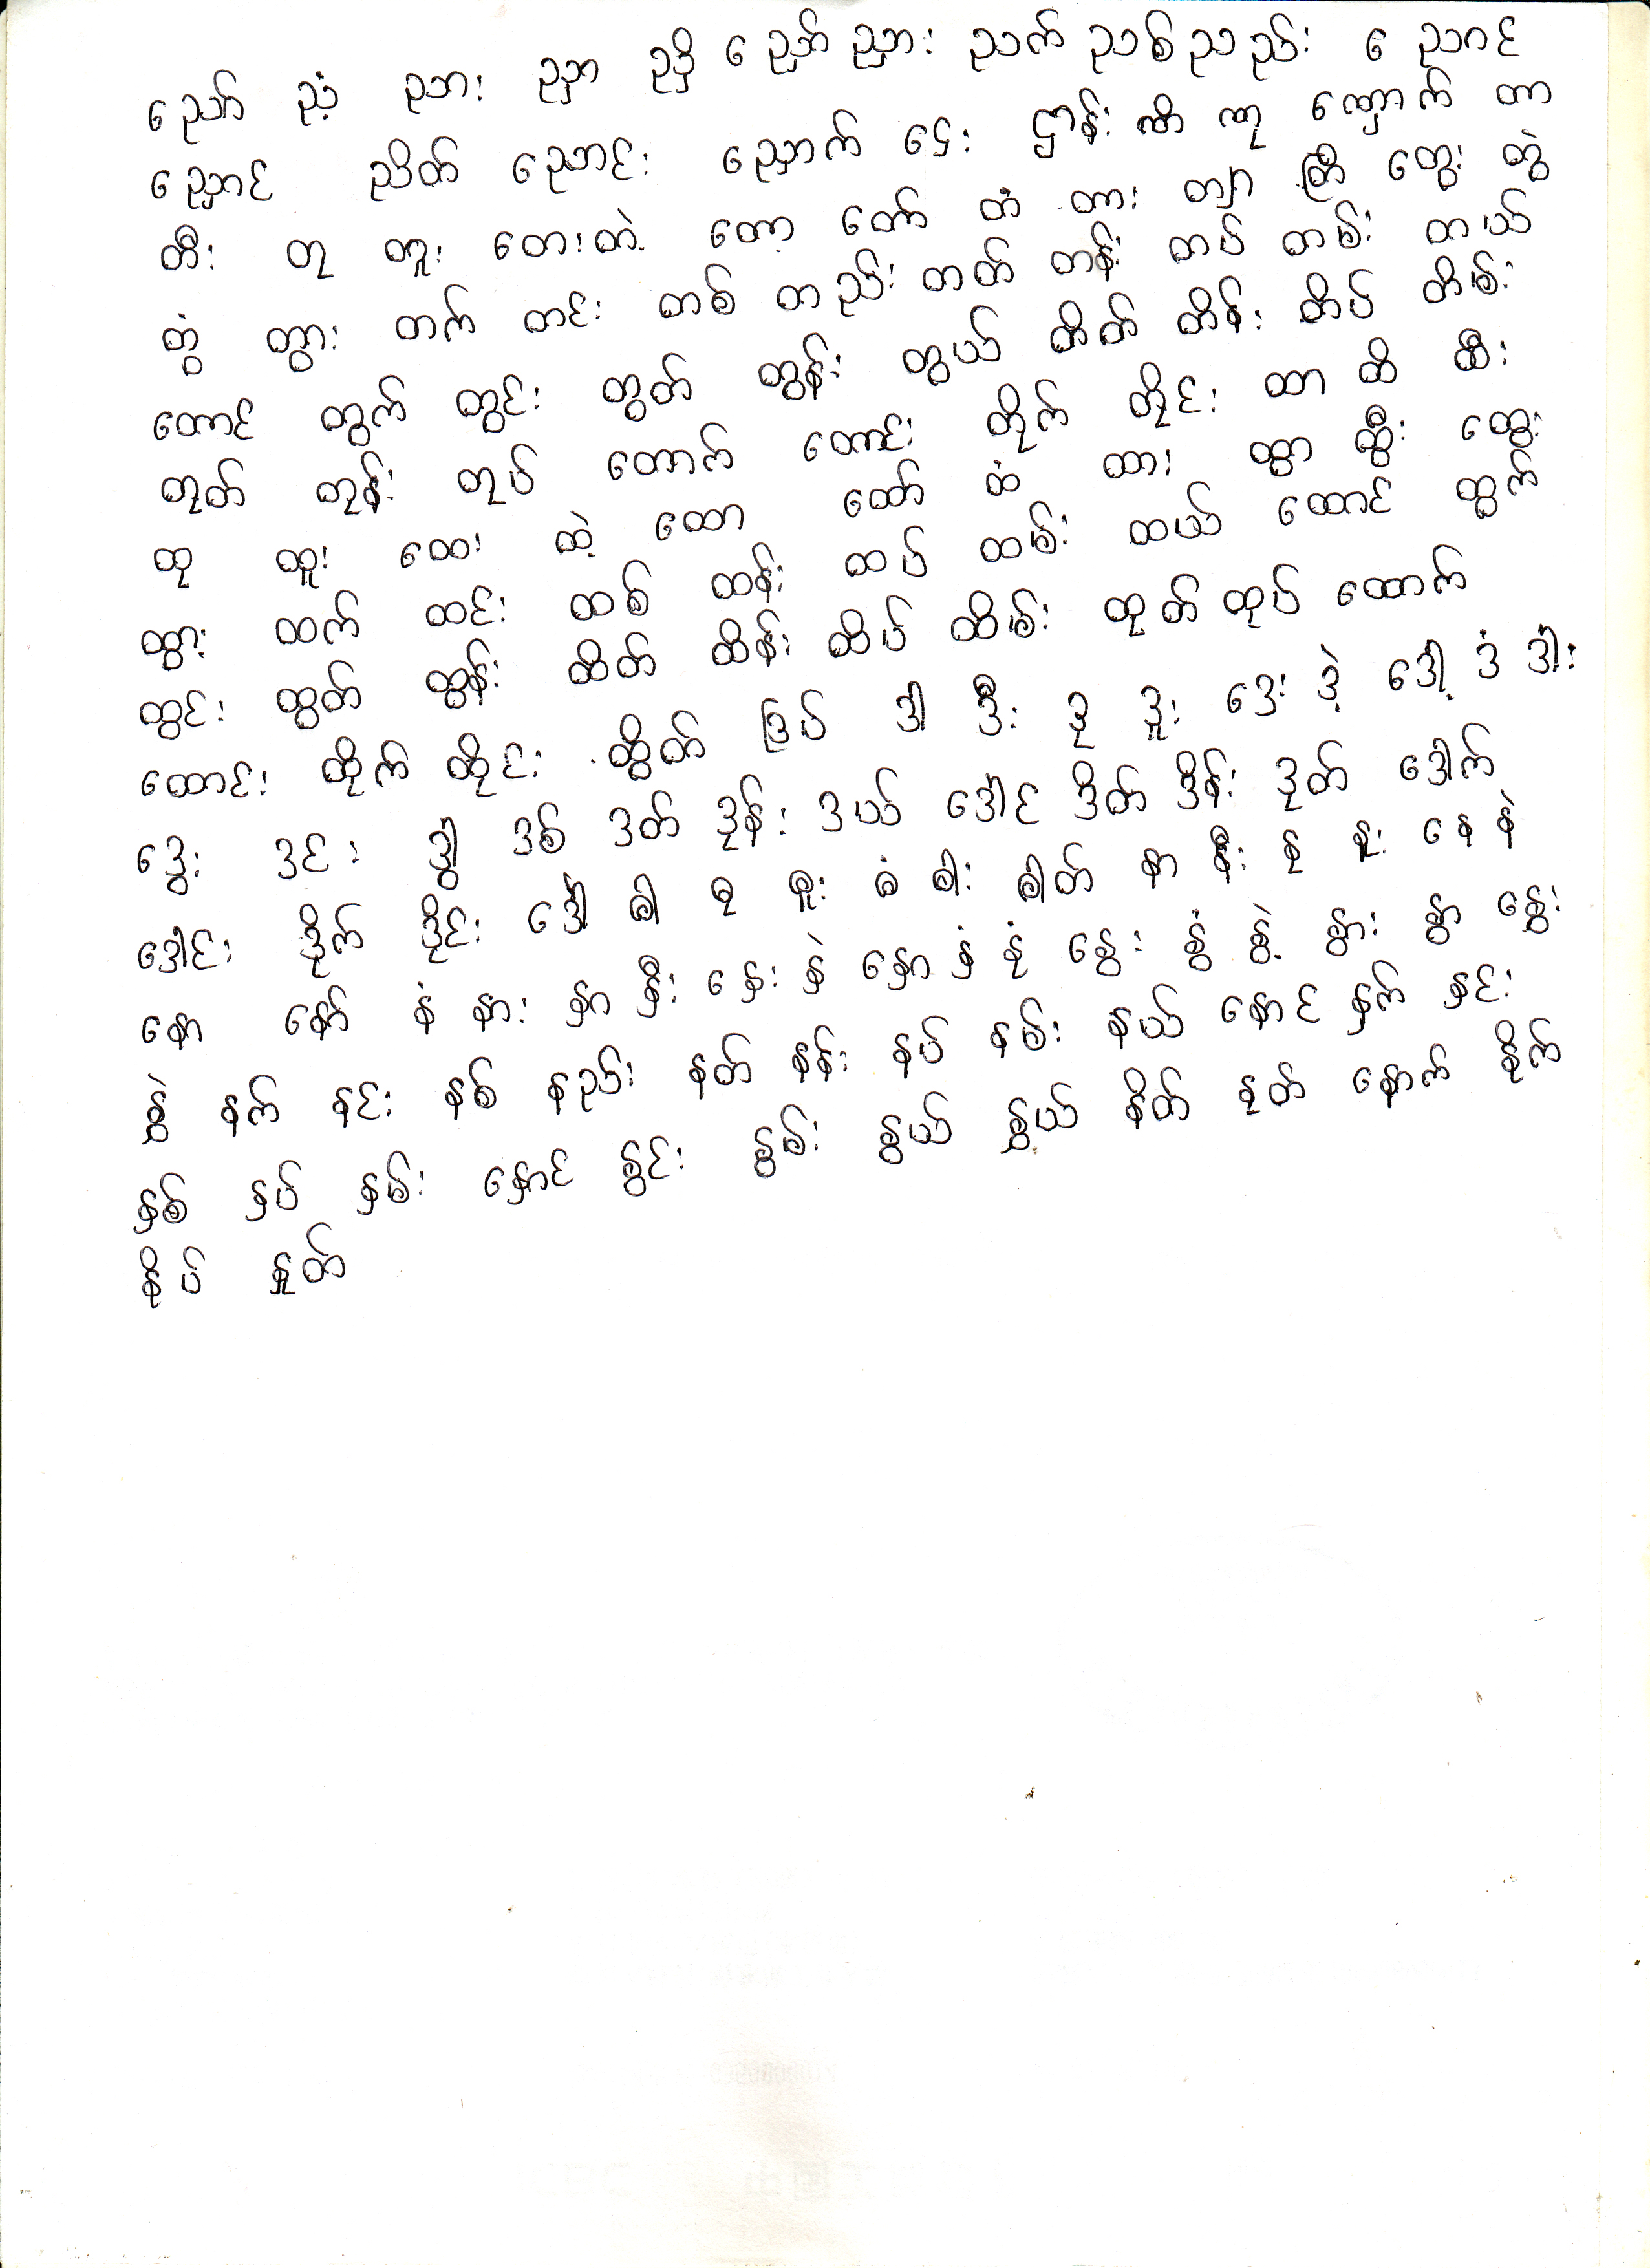 ညော် ညံ့ ညား ညှာ ညှိ ညှော် ညှား ညက် ညစ် ညည်း ညောင်
ညှောင် ညိတ် ညောင်း ညှောက် ဌေး ဌာန်း ဏိ ဏု ဏှောက် တာ
တီး တု တူး တေး တဲ့ တော့ တော် တံ တား တျာ တြီ တွေး တွဲ
တွံ တွား တက် တင်း တစ် တည်း တတ် တန်း တပ် တမ်း တယ်
တောင် တွက် တွင်း တွတ် တွန်း တွယ် တိတ် တိန်း တိပ် တိမ်း
တုတ် တုန်း တုပ် တောက် တောင်း တိုက် တိုင်း ထာ ထိ ထီး
ထု ထူး ထေး ထဲ့ ထော ထော် ထံ ထား ထွာ ထွီး ထွေး
ထွား ထက် ထင်း ထစ် ထန်း ထပ် ထမ်း ထယ် ထောင် ထွက်
ထွင်း ထွတ် ထွန်း ထိတ် ထိန်း ထိပ် ထိမ်း ထုတ် ထုပ် ထောက်
ထောင်း ထိုက် ထိုင်း ထွိတ် ဒြပ် ဒါ ဒီး ဒု ဒူး ဒေး ဒဲ့ ဒေါ့ ဒံ ဒါး
ဒွေး ဒင်း ဒွါ ဒစ် ဒတ် ဒုန်း ဒယ် ဒေါင် ဒိတ် ဒိန်း ဒုတ် ဒေါက်
ဒေါင်း ဒိုက် ဒိုင်း ဒေါ် ဓါ ဓု ဓူး ဓံ ဓါး ဓါတ် နာ နီး နု နူး နေ နဲ
နော နော် နံ နား နှာ နှီး နှေး နှဲ နှော နှံ နုံ နွေး နွံ နွဲ့ နွား နွှာ နွှေး
နွှဲ နက် နင်း နစ် နည်း နတ် နန်း နပ် နမ်း နယ် နောင် နှက် နှင်း
နှစ် နှပ် နှမ်း နှောင် နွင်း နွမ်း နွယ် နွှယ် နိတ် နုတ် နောက် နိုက်
နိုပ် နှုတ်